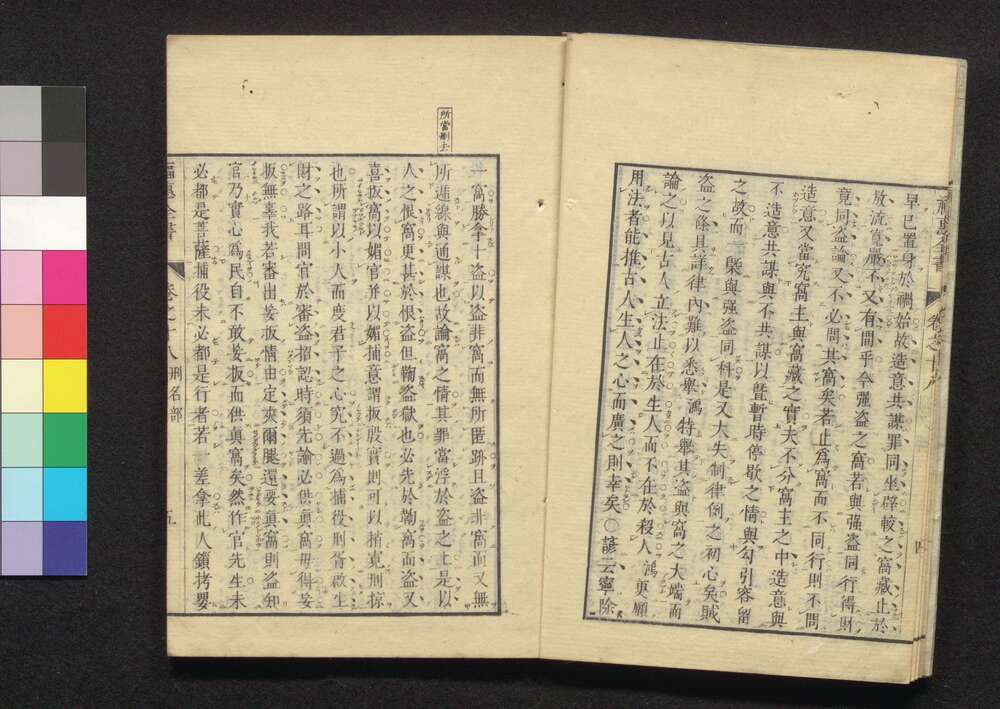 早已置身於禍始故造意共謀罪同坐辟較之窩藏止於
放流寬嚴不又有間乎今強盜之窩若與强盜同行得財
竟同盜論又不必問其窩矣若止為窩而不同行則不問
造意又當究窩主與窩藏之實夫不分窩主之中造意與
不造意共謀與不共謀以暨暫時停歇之情與勾引容留
之故而一槩與強盜同科是又大失制律例之初心矣賊
盜之條具詳律內難以悉舉鴻特舉其盜與窩之大端而
論之以見古人立法止在於生人而不在於殺人鴻更願
用法者能推古人生人之心而廣之則幸矣○諺云寧除
四
所當刪去
一窩勝拿十盜以盜非窩而無所匿跡且盜非窩而又無
所逓線與通謀也故論窩之情其罪當浮於盜之上是以
人之恨窩更甚於恨盜但鞫盜獄也必先於鞫窩而盜又
喜扳窩以媚官并以媚捕意謂扳殷實則可以揹克刑掠
也所謂以小人而度君子之心究不過為捕役刑胥啟生
財之路耳問官於審盜招認時須先諭必供真窩毋得妄
扳無辜我若審出妄扳情由定夾爾腿還要真窩則盜知
官乃實心為民自不敢妄扳而供真窩矣然作官先生未
必都是菩薩捕役未必都是行者若一差拿此人鎖拷要
福惠全書 卷之十八 刑名部 五